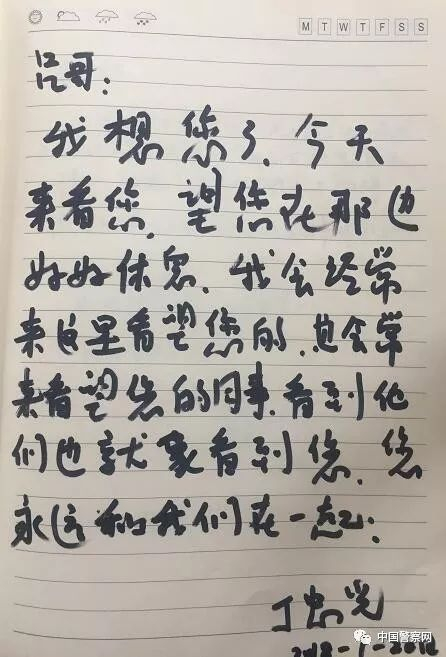 M T W T F S S
吕哥:
我想您了、今天
来看您.望您在那边
好好休息、我会经常
来这里看望您的.也会常
来看望您的同事.看到他
们也就象看到您、您
永远和我们在一起.
丁忠
中国警察网